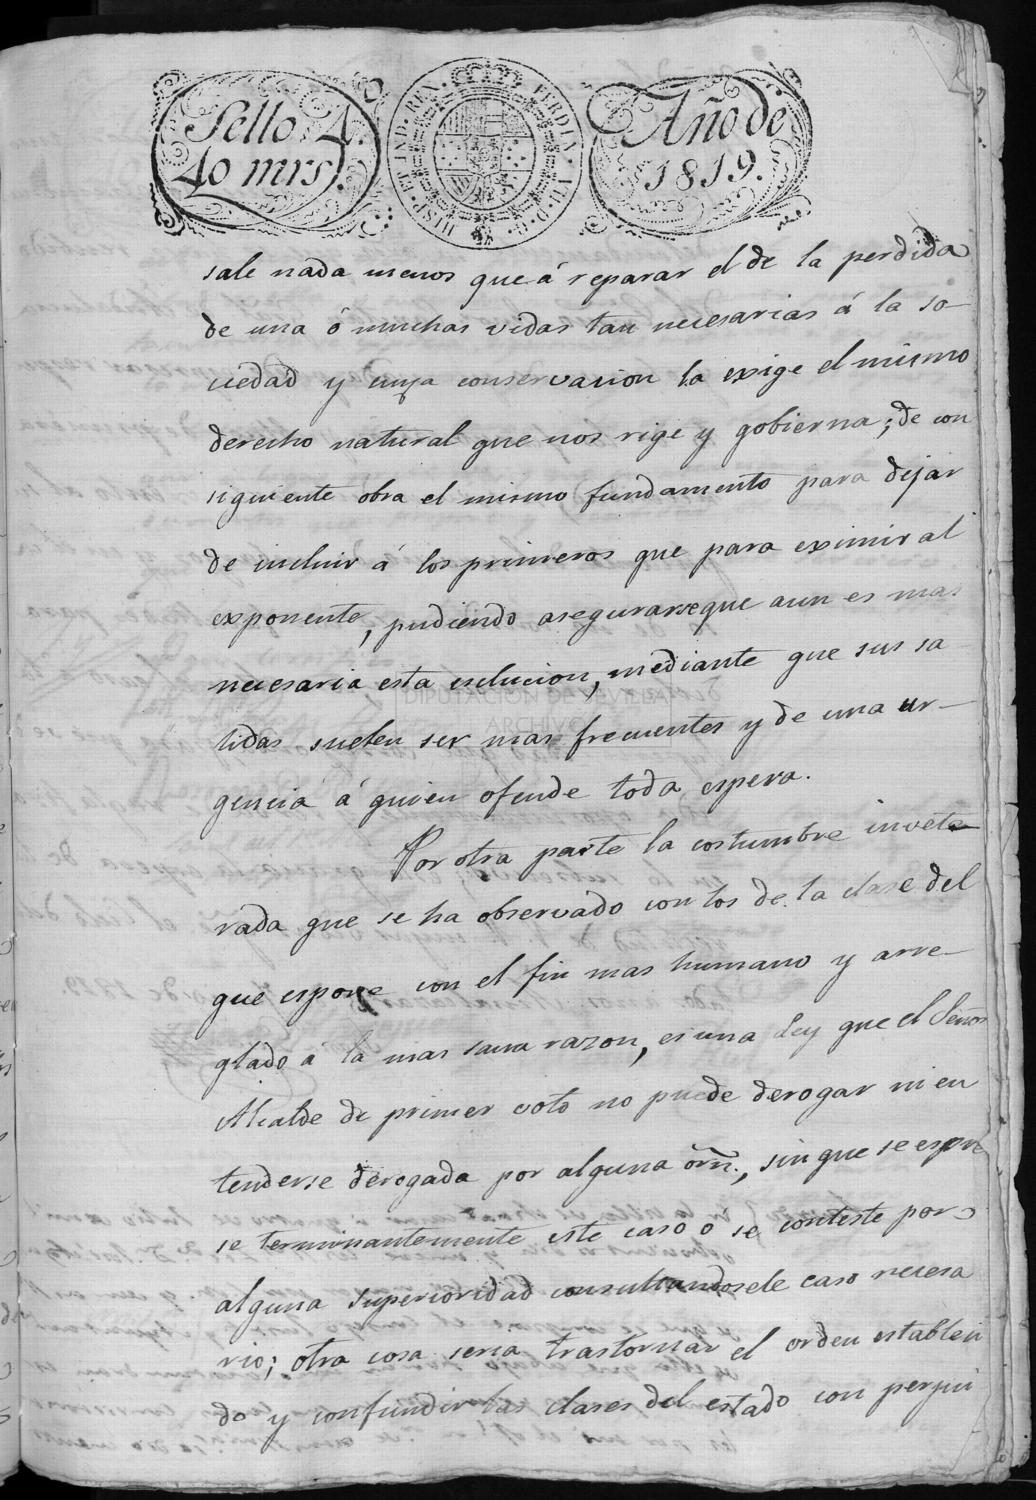 Sello 4.
40 mrs.
HISP. ET IND. REX. FERDIN. VII. D. G.
Año de
1819.
sale nada menos que á reparar el de la perdida
de una ó muchas vidas tan necesarias á la so-
ciedad y cuya conservacion la exige el mismo
derecho natural que nos rige y gobierna; de con
siguiente obra el mismo fundamento para dejar
de incluir á los primeros que para eximir al
exponente, pudiendo asegurarse que aun es mas
necesaria esta esclucion, mediante que sus sa
lidas suelen ser mas frecuentes y de una ur-
gencia á quien ofende toda espera.
Por otra parte la costumbre invete-
rada que se ha observado con los de la clase del
que espone con el fin mas humano y arre-
glado á la mas sana razon, es una Ley que el Señor
Alcalde de primer voto no puede derogar ni en
tenderse derogada por alguna orñ., sin que se espre
se terminantemente este caso ó se conteste por
alguna superioridad consultandosele caso necesa
rio; otra cosa seria trastornar el orden estableci
do y confundir las clases del estado con perjui
DIPUTACIÓN DE SEVILLA
ARCHIVO